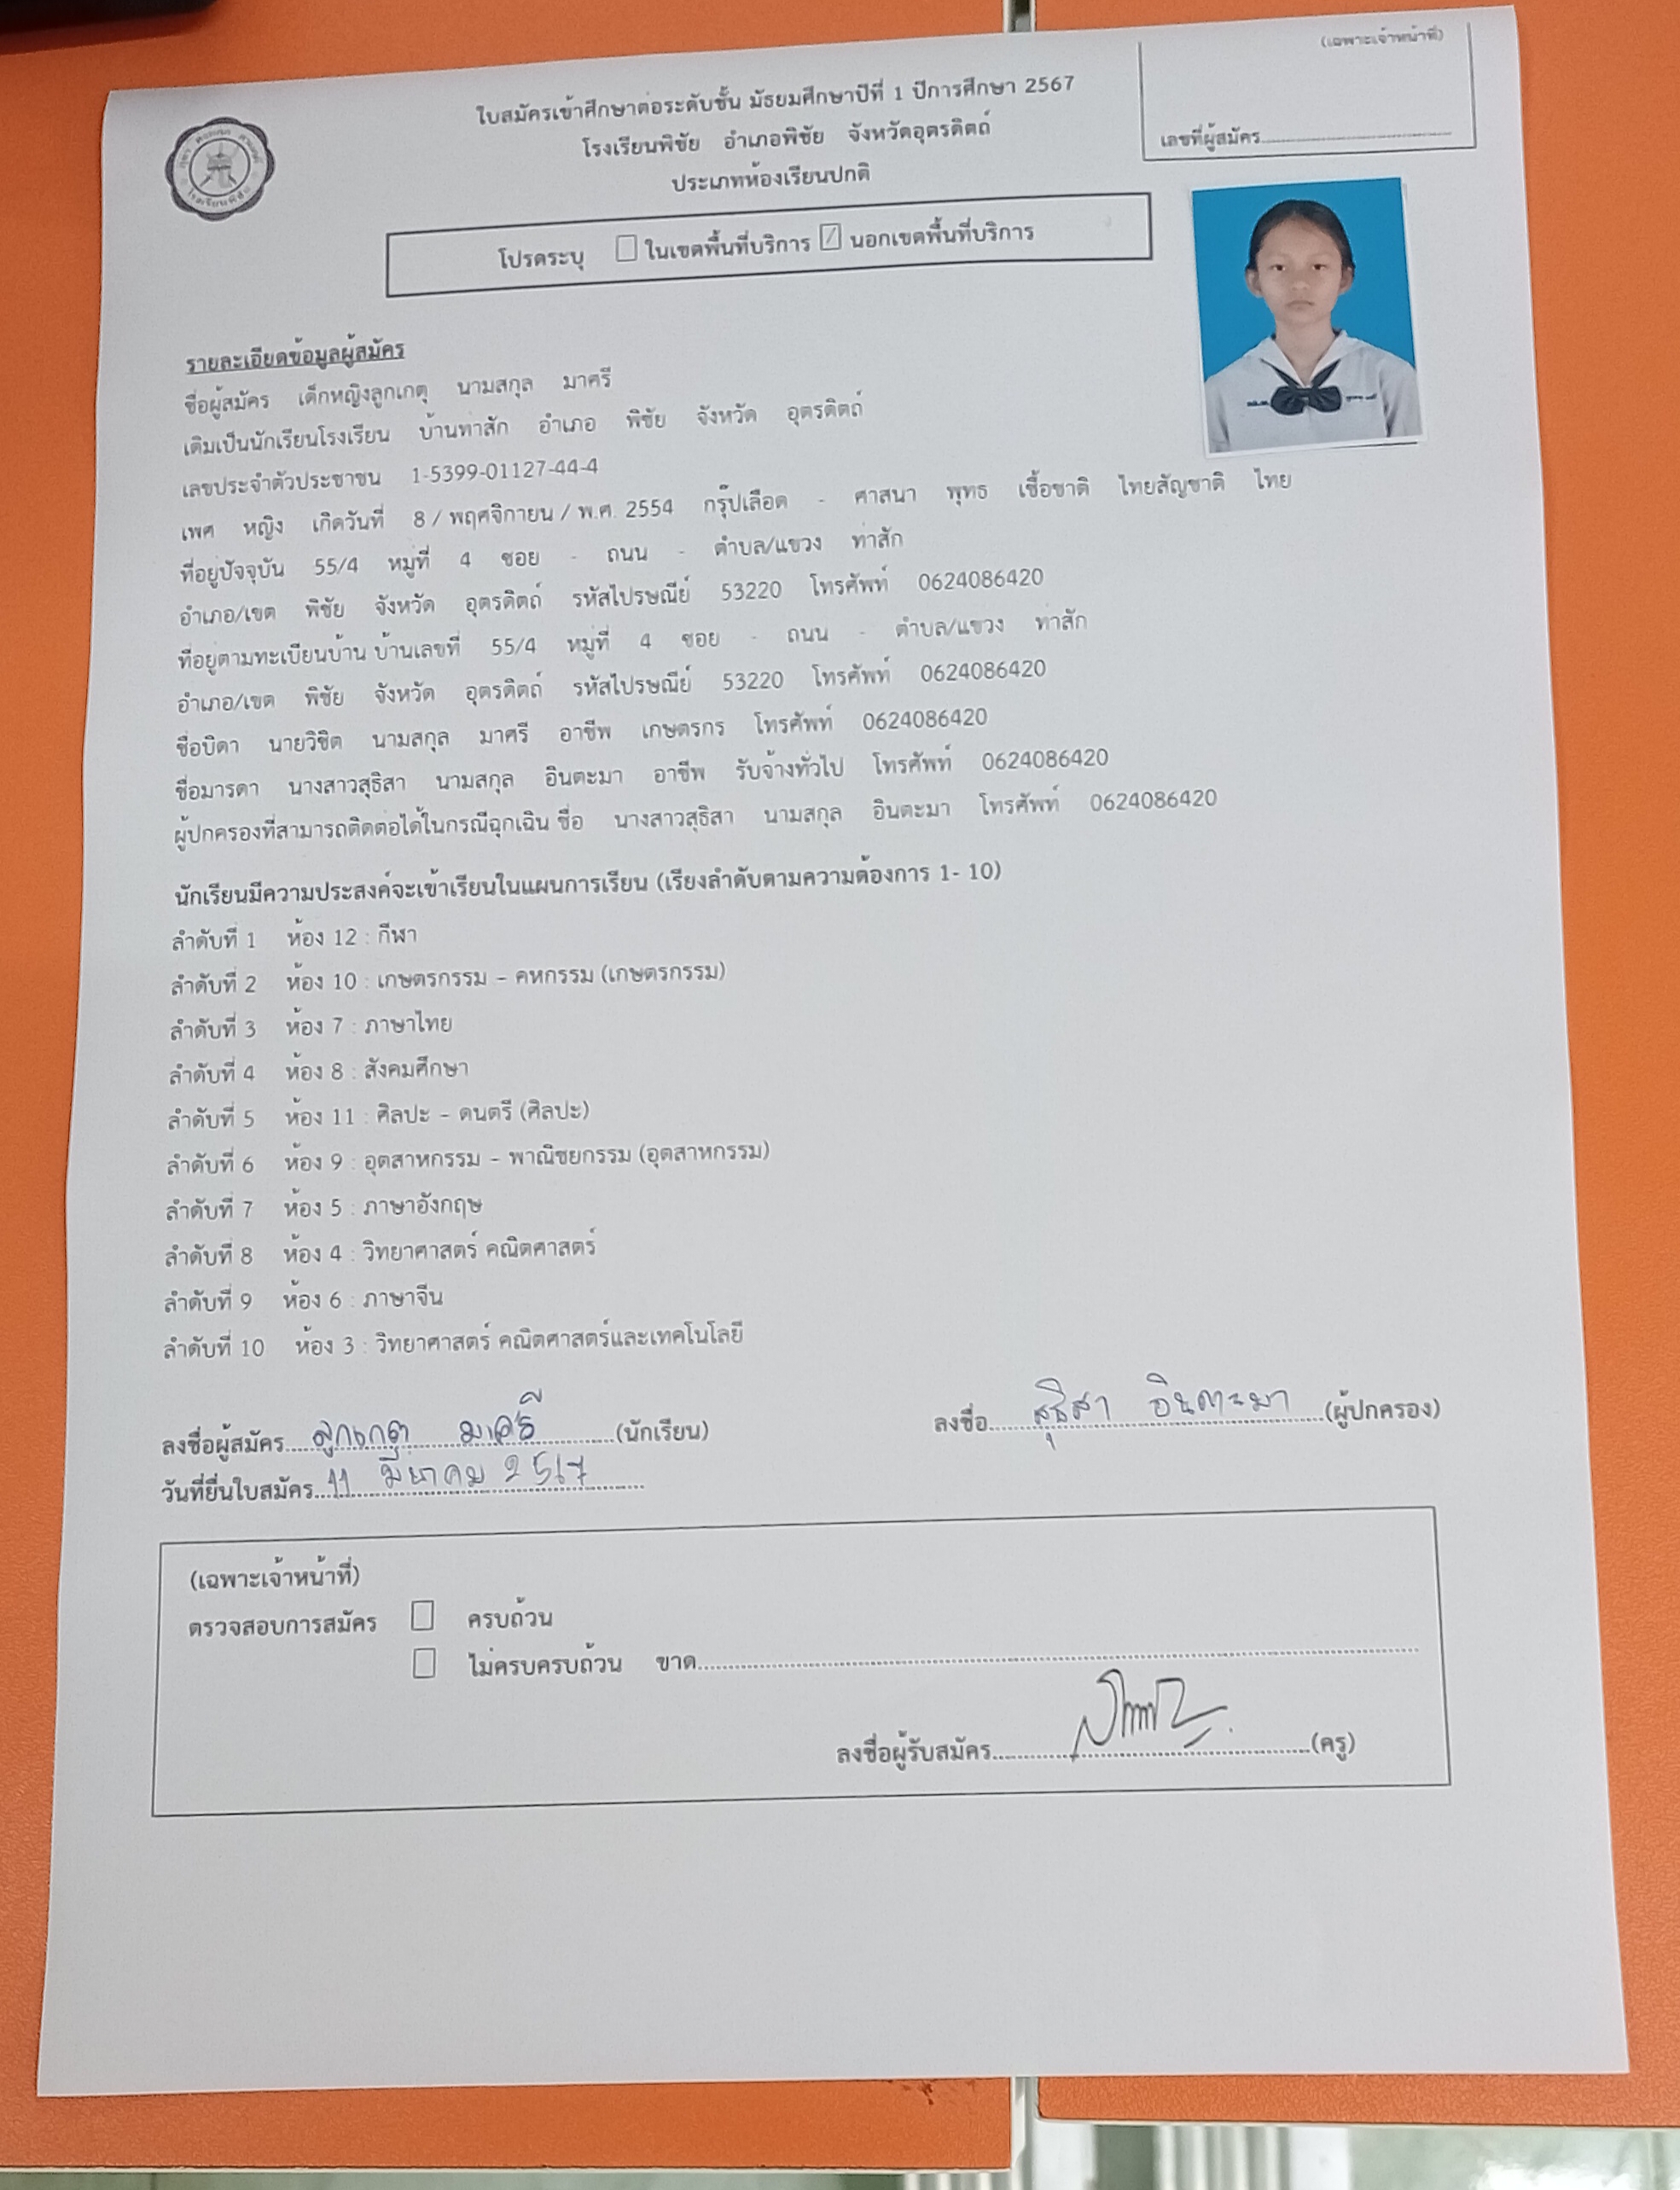 (เฉพาะเจ้าหน้าที่)
เลขที่ผู้สมัคร
ใบสมัครเข้าศึกษาต่อระดับชั้น มัธยมศึกษาปีที่ 1 ปีการศึกษา 2567
โรงเรียนพิชัย อำเภอพิชัย จังหวัดอุตรดิตถ์
ประเภทห้องเรียนปกติ
โปรดระบุ ☐ ในเขตพื้นที่บริการ ☑ นอกเขตพื้นที่บริการ
รายละเอียดข้อมูลผู้สมัคร
ชื่อผู้สมัคร เด็กหญิงลูกเกตุ นามสกุล มาศรี
เดิมเป็นนักเรียนโรงเรียน บ้านท่าสัก อำเภอ พิชัย จังหวัด อุตรดิตถ์
เลขประจำตัวประชาชน 1-5399-01127-44-4
เพศ หญิง เกิดวันที่ 8 / พฤศจิกายน / พ.ศ. 2554 กรุ๊ปเลือด - ศาสนา พุทธ เชื้อชาติ ไทยสัญชาติ ไทย
ที่อยู่ปัจจุบัน 55/4 หมู่ที่ 4 ซอย - ถนน - ตำบล/แขวง ท่าสัก
อำเภอ/เขต พิชัย จังหวัด อุตรดิตถ์ รหัสไปรษณีย์ 53220 โทรศัพท์ 0624086420
ที่อยู่ตามทะเบียนบ้าน บ้านเลขที่ 55/4 หมู่ที่ 4 ซอย - ถนน - ตำบล/แขวง ท่าสัก
อำเภอ/เขต พิชัย จังหวัด อุตรดิตถ์ รหัสไปรษณีย์ 53220 โทรศัพท์ 0624086420
ชื่อบิดา นายวิชิต นามสกุล มาศรี อาชีพ เกษตรกร โทรศัพท์ 0624086420
ชื่อมารดา นางสาวสุธิสา นามสกุล อินตะมา อาชีพ รับจ้างทั่วไป โทรศัพท์ 0624086420
ผู้ปกครองที่สามารถติดต่อได้ในกรณีฉุกเฉิน ชื่อ นางสาวสุธิสา นามสกุล อินตะมา โทรศัพท์ 0624086420
นักเรียนมีความประสงค์จะเข้าเรียนในแผนการเรียน (เรียงลำดับตามความต้องการ 1- 10)
ลำดับที่ 1 ห้อง 12 : กีฬา
ลำดับที่ 2 ห้อง 10 : เกษตรกรรม – คหกรรม (เกษตรกรรม)
ลำดับที่ 3 ห้อง 7 : ภาษาไทย
ลำดับที่ 4 ห้อง 8 : สังคมศึกษา
ลำดับที่ 5 ห้อง 11 : ศิลปะ – ดนตรี (ศิลปะ)
ลำดับที่ 6 ห้อง 9 : อุตสาหกรรม – พาณิชยกรรม (อุตสาหกรรม)
ลำดับที่ 7 ห้อง 5 : ภาษาอังกฤษ
ลำดับที่ 8 ห้อง 4 : วิทยาศาสตร์ คณิตศาสตร์
ลำดับที่ 9 ห้อง 6 : ภาษาจีน
ลำดับที่ 10 ห้อง 3 : วิทยาศาสตร์ คณิตศาสตร์และเทคโนโลยี
ลงชื่อผู้สมัคร ลูกเกตุ มาศรี (นักเรียน) ลงชื่อ สุธิสา อินตะมา (ผู้ปกครอง)
วันที่ยื่นใบสมัคร 11 มีนาคม 2567
(เฉพาะเจ้าหน้าที่)
ตรวจสอบการสมัคร ☐ ครบถ้วน
☐ ไม่ครบครบถ้วน ขาด
ลงชื่อผู้รับสมัคร (ครู)